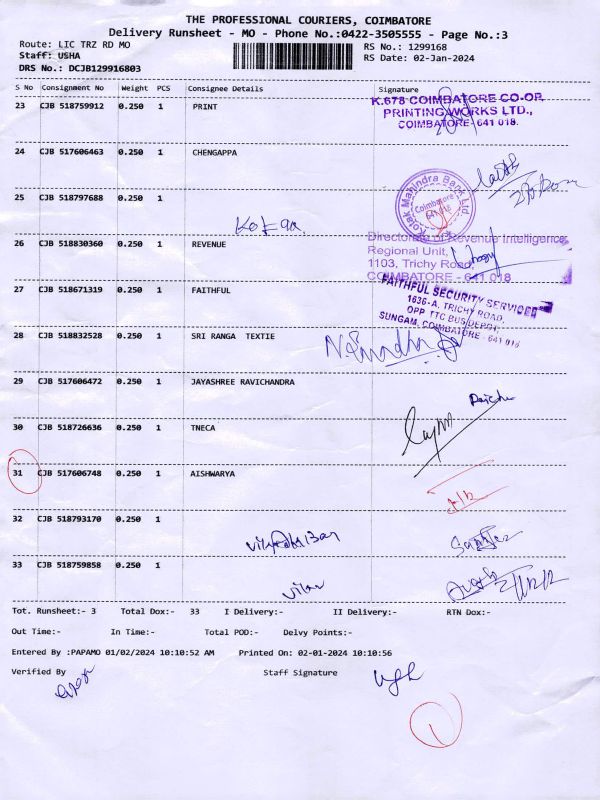 THE PROFESSIONAL COURIERS, COIMBATORE
Delivery Runsheet - MO - Phone No.:0422-3505555 - Page No.:3
Route: LIC TRZ RD MO
RS No.: 1299168
Staff: USHA
RS Date: 02-Jan-2024
DRS No.: DCJB129916803
S No Consignment No Weight PCS Consignee Details Signature
23 CJB 518759912 0.250 1 PRINT
K.678 COIMBATORE CO-OP.
PRINTING WORKS LTD.,
COIMBATORE- 641 018.
24 CJB 517606463 0.250 1 CHENGAPPA
Kotak Mahindra Bank Ltd
Coimbatore
25 CJB 518797688 0.250 1
26 CJB 518830360 0.250 1 REVENUE
Directorate of Revenue Intelligence
Regional Unit,
1103, Trichy Road,
COIMBATORE - 641 018
27 CJB 518671319 0.250 1 FAITHFUL
FAITHFUL SECURITY SERVICES
1636-A, TRICHY ROAD,
OPP. TTC BUS DEPOT,
SUNGAM, COIMBATORE - 641 018
28 CJB 518832528 0.250 1 SRI RANGA TEXTIE
29 CJB 517606472 0.250 1 JAYASHREE RAVICHANDRA
30 CJB 518726636 0.250 1 TNECA
31 CJB 517606748 0.250 1 AISHWARYA
32 CJB 518793170 0.250 1
33 CJB 518759858 0.250 1
Tot. Runsheet:- 3 Total Dox:- 33 I Delivery:- II Delivery:- RTN Dox:-
Out Time:- In Time:- Total POD:- Delvy Points:-
Entered By :PAPAMO 01/02/2024 10:10:52 AM Printed On: 02-01-2024 10:10:56
Verified By Staff Signature
1